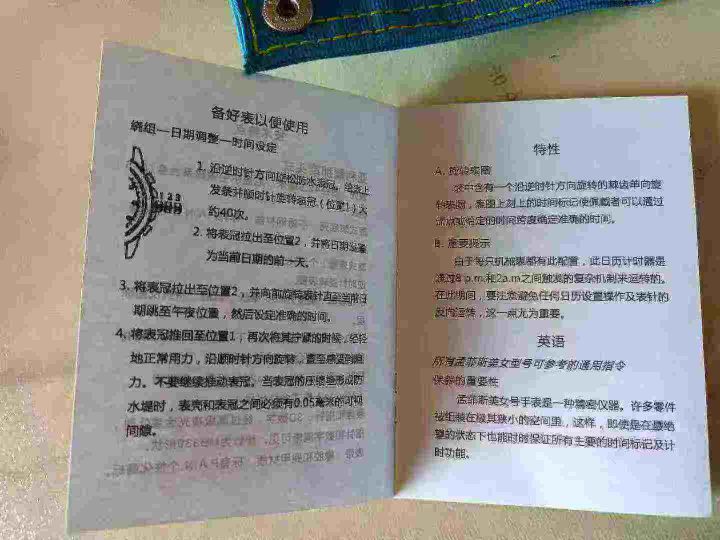 备好表以便使用
绕组一日期调整一时间设定
1 2 3
1. 沿逆时针方向旋松防水表冠。给表上
发条并顺时针旋转表冠（位置1）大
约40次。
2. 将表冠拉出至位置2，并将日期设置
为当前日期的前一天。
3. 将表冠拉出至位置2，并向前旋转表针直至当前日
期跳至午夜位置，然后设定准确的时间。
4. 将表冠推回至位置1，再次将其拧紧的时候，轻轻
地正常用力，沿顺时针方向旋转，直至感觉到阻
力。不要继续推动表冠。当表冠的压缩垫形成防
水堤时，表壳和表冠之间必须有0.05毫米的可视
间隙。
特性
A. 旋转表圈
含有一个沿逆时针方向旋转的棘齿单向旋
转表圈，表圈上刻上的时间标记使佩戴者可以通过
给定的时间跨度确定准确的时间。
B. 重要提示
由于每只机械表都有此配置，此日历计时器是
通过8 p.m.和2a.m之间触发的复杂机制来运转的。
在此期间，要注意避免任何日历设置操作及表针的
反向运转，这一点尤为重要。
英语
所有孟菲斯美女型号可参考的通用指令
保养的重要性
孟菲斯美女号手表是一种精密仪器。许多零件
被组装在极其狭小的空间里，这样，即使是在最绝
望的状态下也能时时保证所有主要的时间标记及计
时功能。